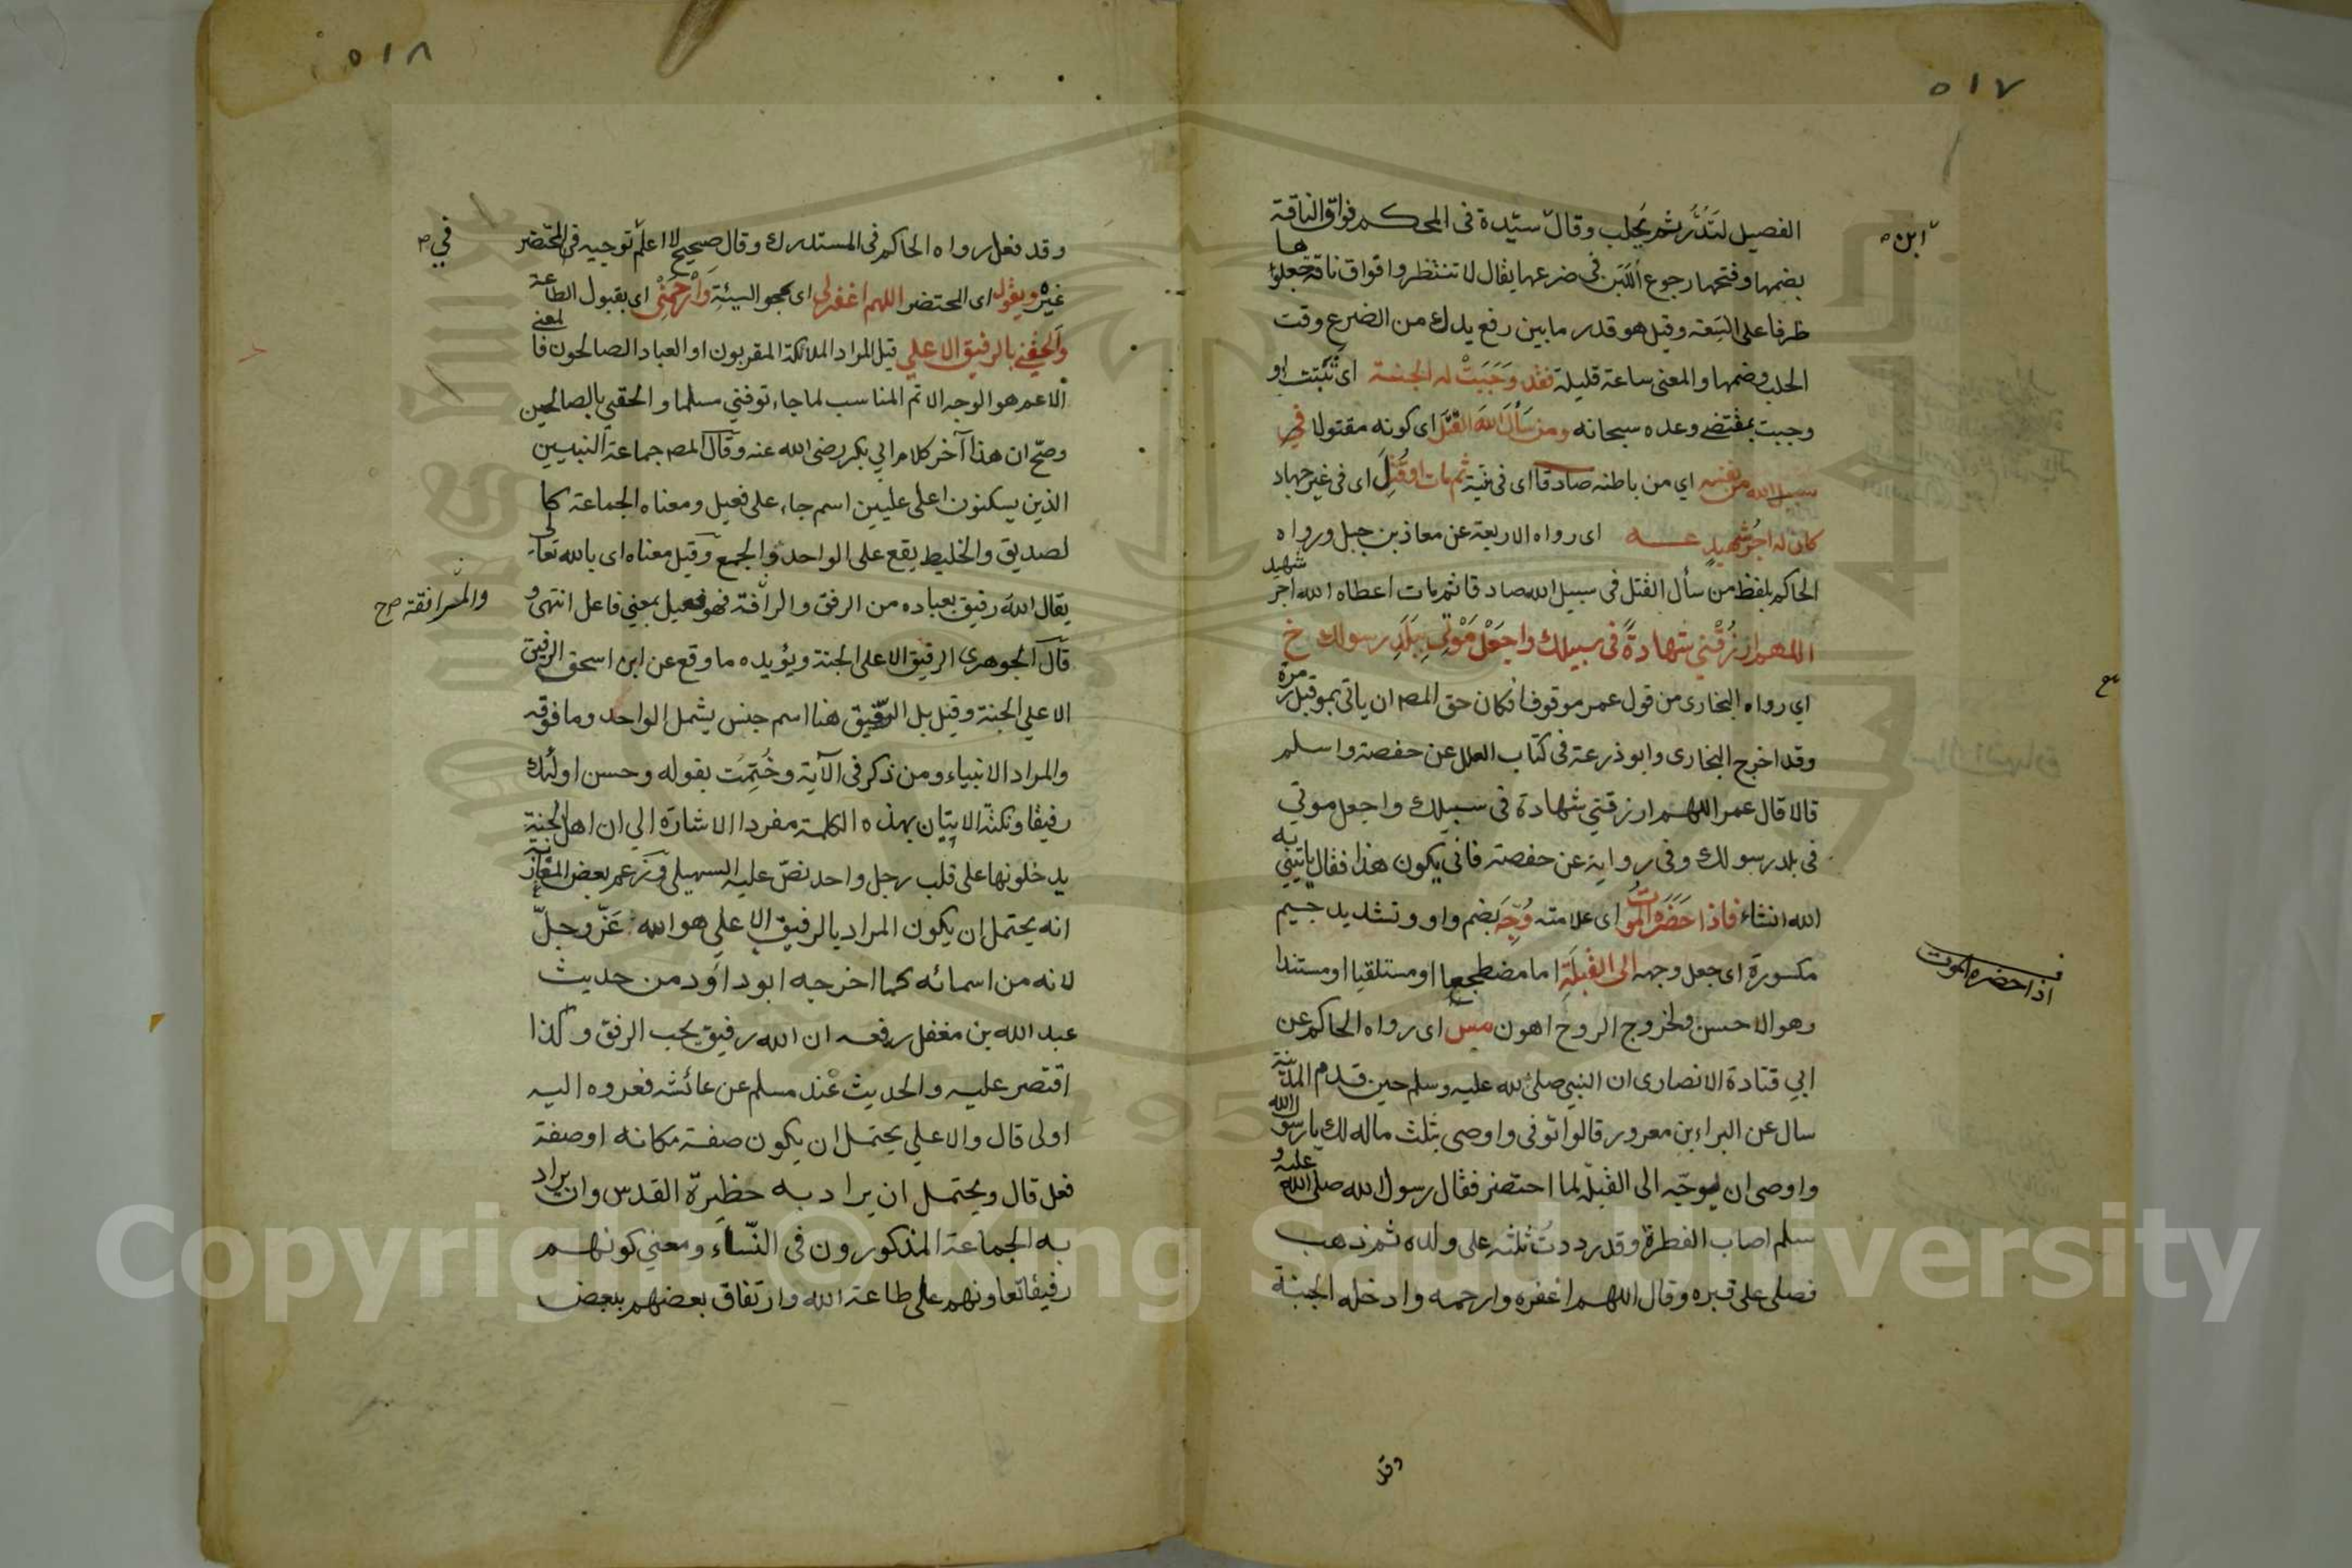 ٥١٧
الفصيل لتَدُرَّ ثم يحلب وقال سيّدة فى المحكم فواق الناقة
ابن
بضمها وفتحها رجوع اللَّبَن فى ضرعها يقال لا تنتظروا فواق ناقة جعلوها
ظرفا على السَعة وقيل هو قدر ما بين رفع يدك من الضرع وقت
الحلب وضمها والمعنى ساعة قليلة فقد وَجَبَتْ له الجنة اى تثبتت او
وجبت بمقتضى وعده سبحانه ومن سَأَلَ اللهَ القَتْلَ اى كونه مقتولا في
سبيل الله من نفسه اي من باطنه صادقا اى فى نية ثم مات او قُتِلَ اى فى غير جهاد
كان له اجرُ شهيدٍ عه اى رواه الاربعة عن معاذ بن جبل ورواه
الحاكم بلفظ من سأل القتل فى سبيل الله صادقا ثم مات اعطاه الله اجر شهيد
اللهم ارزُقْني شهادةً فى سبيلك واجعَلْ مَوْتِي بِبَلَدِ رسولك خ
اي رواه البخارى من قول عمر موقوفا فكان حق المصـ ان ياتى بمو قبل رمزه
وقد اخرج البخارى وابو ذرعة فى كتاب العلل عن حفصة واسلم
قالا قال عمر اللهم ارزقني شهادة فى سبيلك واجعل موتي
فى بلد رسولك وفى رواية عن حفصة فانى يكون هذا فقال ياتيني به
الله انشاء فاذا حَضَرَه الموتُ اى علامته وُجِّهَ بضم واو وتشديد جيم
مكسورة اى جعل وجهه الى القبلَةِ اما مضطجعا او مستلقيا او مستندا
اذا حضره الموت
وهو الاحسن ولخروج الروح اهون مس اى رواه الحاكم عن
ابي قتادة الانصارى ان النبي صلى الله عليه وسلم حين قدم المدينة
سال عن البراء بن معرور قالوا توفى واوصى بثلث ماله لك يا رسول الله
واوصى ان يوجّه الى القبلة لما احتضر فقال رسول الله صلى الله عليه و
سلم اصاب الفطرة وقد رددتُ ثلثه على ولده ثم ذهب
فصلى على قبره وقال اللهم اغفره وارحمه وادخله الجنة
وقد
٥١٨
وقد فعل رواه الحاكم فى المستدرك وقال صحيح لا اعلم توجيه فى المحتضر
في
غيره ويقول اى المحتضر اللهم اغفر لى اى بمحو السيئة وَارْحَمْنِيْ اى بقبول الطاعة
وَالحِقْنِي بالرفيق الاعلي قيل المراد الملائكة المقربون او العباد الصالحون فا لمعنى
الاعم هو الوجه الاتم المناسب لما جاء توفني مسلما والحقني بالصالحين
وصحّ ان هذا آخر كلام ابي بكر رضى الله عنه وقال المصـ جماعة النبيين
الذين يسكنون اعلى عليين اسم جاء على فعيل ومعناه الجماعة كا
لصديق والخليط يقع على الواحد والجمع وقيل معناه اى بالله تعالى
يقال الله رفيق بعباده من الرفق والرأفة فهو فعيل بمعني فاعل انتهى و
والمرافقة صح
قال الجوهرى الرفيق الاعلى الجنة ويؤيده ما وقع عن ابن اسحق الرفيق
الاعلي الجنة وقيل بل الرفيق هنا اسم جنس يشمل الواحد وما فوقه
والمراد الانبياء ومن ذكر فى الآية وخُتِمَت بقوله وحسن اولئك
رفيقا ونكتة الاتيان بهذه الكلمة مفردا الاشارة الي ان اهل الجنة
يدخلونها على قلب رجل واحد نصّ عليه السهيلى وزعم بعض المغاربة
انه يحتمل ان يكون المراد بالرفيق الاعلي هو الله عَزّ وجلّ
لانه من اسمائه كما اخرجه ابو داوَد من حديث
عبد الله بن مغفل رفعه ان الله رفيق يحب الرفق وكذا
اقتصر عليه والحديث عند مسلم عن عائشه فعزوه اليه
اولى قال والاعلي يحتمل ان يكون صفة مكانه او صفة
فعل قال ويحتمل ان يراد به حظيرة القدس وان يراد
به الجماعة المذكورون فى النّساء ومعني كونهم
رفيقا تعاونهم على طاعة الله وارتفاق بعضهم ببعض
Copyright © King Saud University
1957